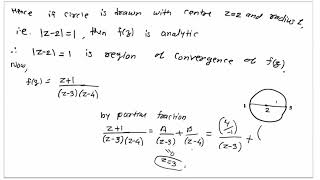 Hence if circle is drawn with centre z=2 and radius 1,
i.e. |z-2|=1, then f(z) is analytic
∴ |z-2|=1 is region of convergence of f(z).
Now,
f(z) = z+1 / (z-3)(z-4)
1 2 3
by partial fraction
z+1 / (z-3)(z-4) = A / (z-3) + B / (z-4) = (4 / -1) / (z-3) + (
z=3